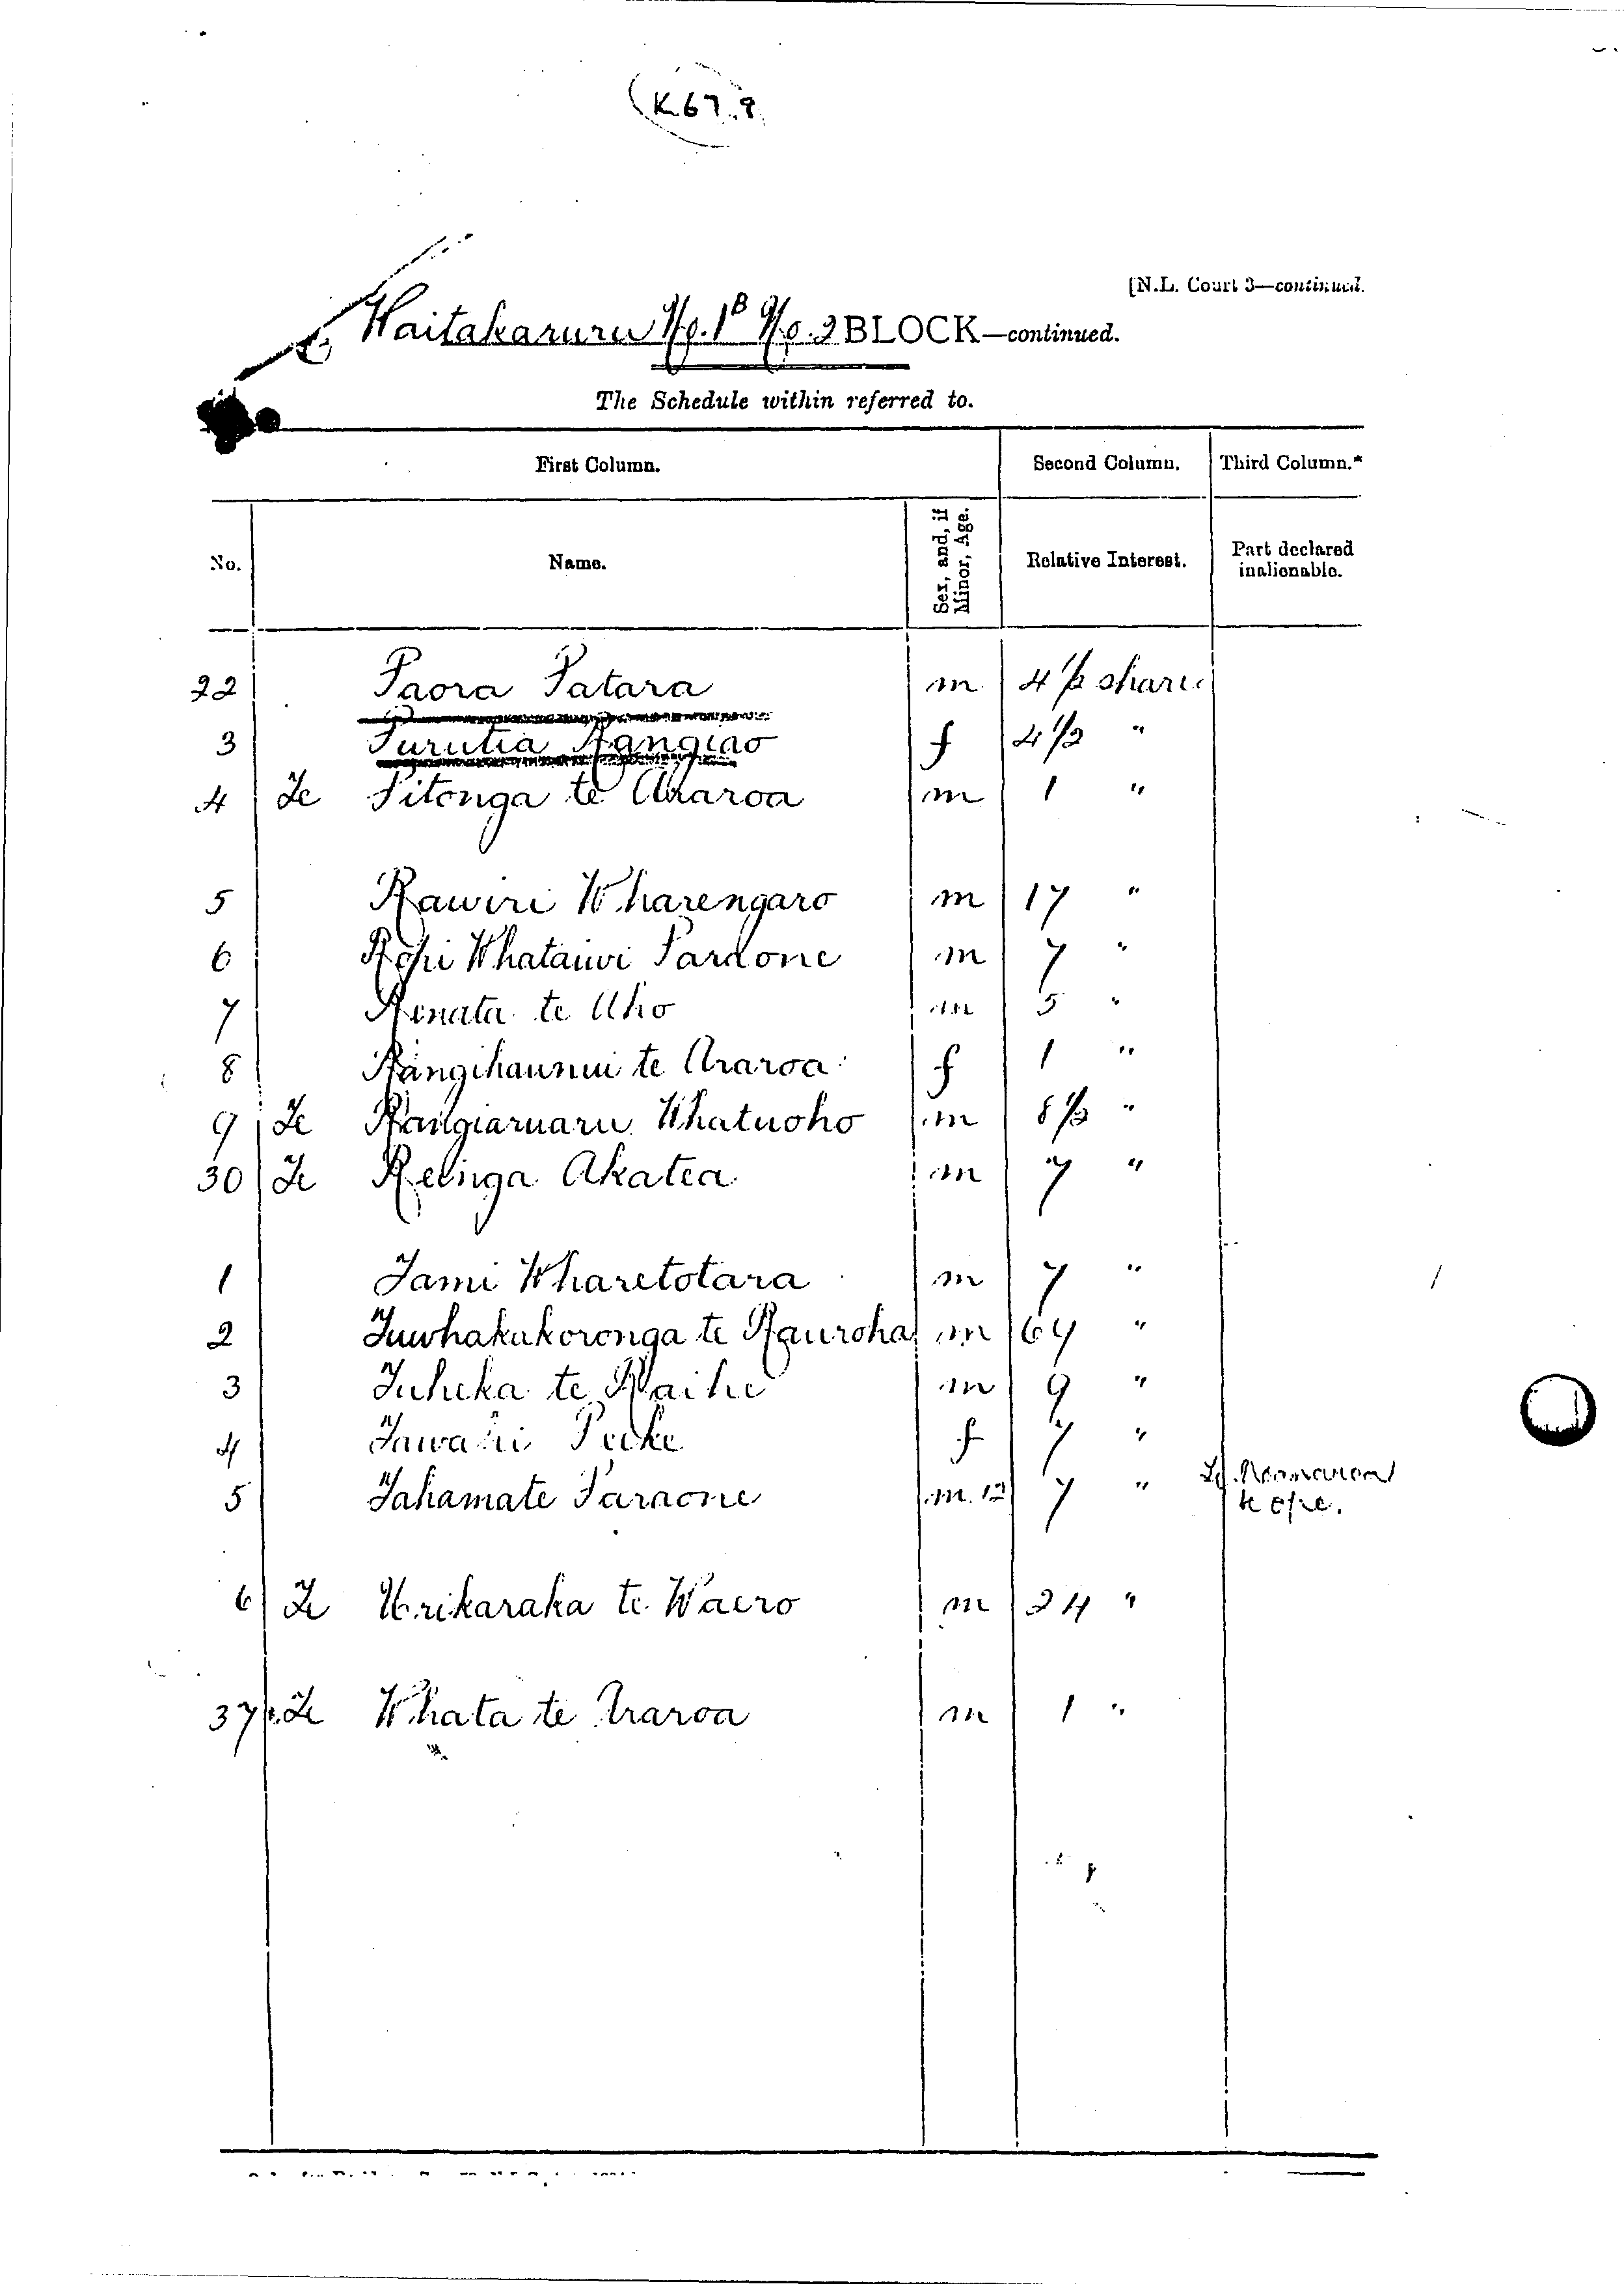 K 67.8
[N.L. Court 3—continued.
Waitakaruru No. 1B No. 2 BLOCK—continued.
The Schedule within referred to.
First Column. Second Column. Third Column.*
No. Name. Sex, and, if Minor, Age. Relative Interest. Part declared inalienable.
22 Paora Patara m 4 1/2 shares
3 Purutia Rangiao f 4 1/2 "
4 Te Pitonga te Araroa m 1 "
5 Rawiri Wharengaro m 17 "
6 Ropi Whatauwi Paraone m 7 "
7 Renata te Aho m 5 "
8 Rangihaunui te Araroa f 1 "
9 Te Rangiaruaru Whatuoho m 8 1/2 "
30 Te Reinga Akatea m 7 "
1 Tami Wharetotara m 7 "
2 Tuwhakakoronga te Rauroha m 67 "
3 Tuheka te Waihi m 9 "
4 Tawahi Peeke f 7 "
5 Tahamate Paraone m. 12 7 "
6 Te Urikaraka te Waero m 24 "
37 Te Whata te Araroa m 1 "